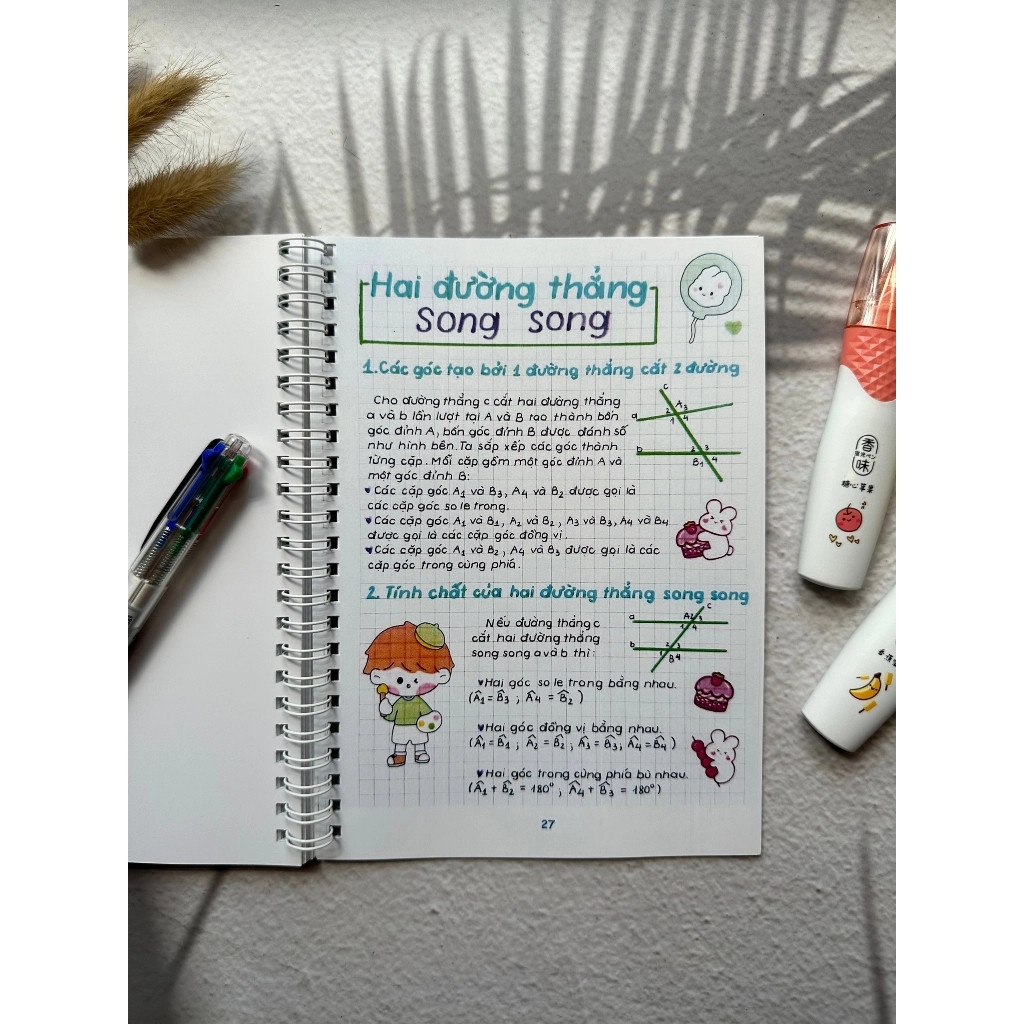 Hai đường thẳng
song song
1. Các góc tạo bởi 1 đường thẳng cắt 2 đường
Cho đường thẳng c cắt hai đường thẳng
a và b lần lượt tại A và B tạo thành bốn
góc đỉnh A, bốn góc đỉnh B được đánh số
như hình bên. Ta sắp xếp các góc thành
từng cặp. Mỗi cặp gồm một góc đỉnh A và
một góc đỉnh B:
c
a
2 A 3
1 4
b
2 3
B 1 4
♥ Các cặp góc A1 và B3, A4 và B2 được gọi là
các cặp góc so le trong.
♥ Các cặp góc A1 và B1, A2 và B2, A3 và B3, A4 và B4
được gọi là các cặp góc đồng vị.
♥ Các cặp góc A1 và B2, A4 và B3 được gọi là các
cặp góc trong cùng phía.
2. Tính chất của hai đường thẳng song song
Nếu đường thẳng c
cắt hai đường thẳng
song song a và b thì:
c
a
A 2 3
1 4
b
1 2 3
B 4
♥ Hai góc so le trong bằng nhau.
(Â1 = B̂3 ; Â4 = B̂2)
♥ Hai góc đồng vị bằng nhau.
(Â1 = B̂1 ; Â2 = B̂2 ; Â3 = B̂3 ; Â4 = B̂4)
♥ Hai góc trong cùng phía bù nhau.
(Â1 + B̂2 = 180° ; Â4 + B̂3 = 180°)
27
香
味
糖心苹果